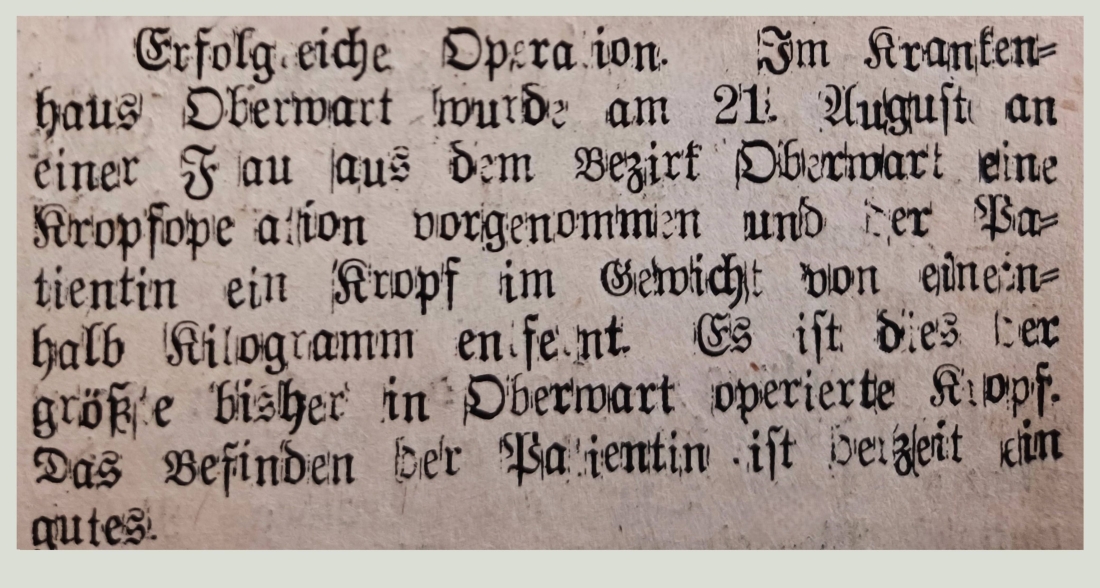 Erfolgreiche Operation. Im Kranken=
haus Oberwart wurde am 21. August an
einer Frau aus dem Bezirk Oberwart eine
Kropfoperation vorgenommen und der Pa=
tientin ein Kropf im Gewicht von einein=
halb Kilogramm entfernt. Es ist dies der
größte bisher in Oberwart operierte Kropf.
Das Befinden der Patientin ist derzeit ein
gutes.